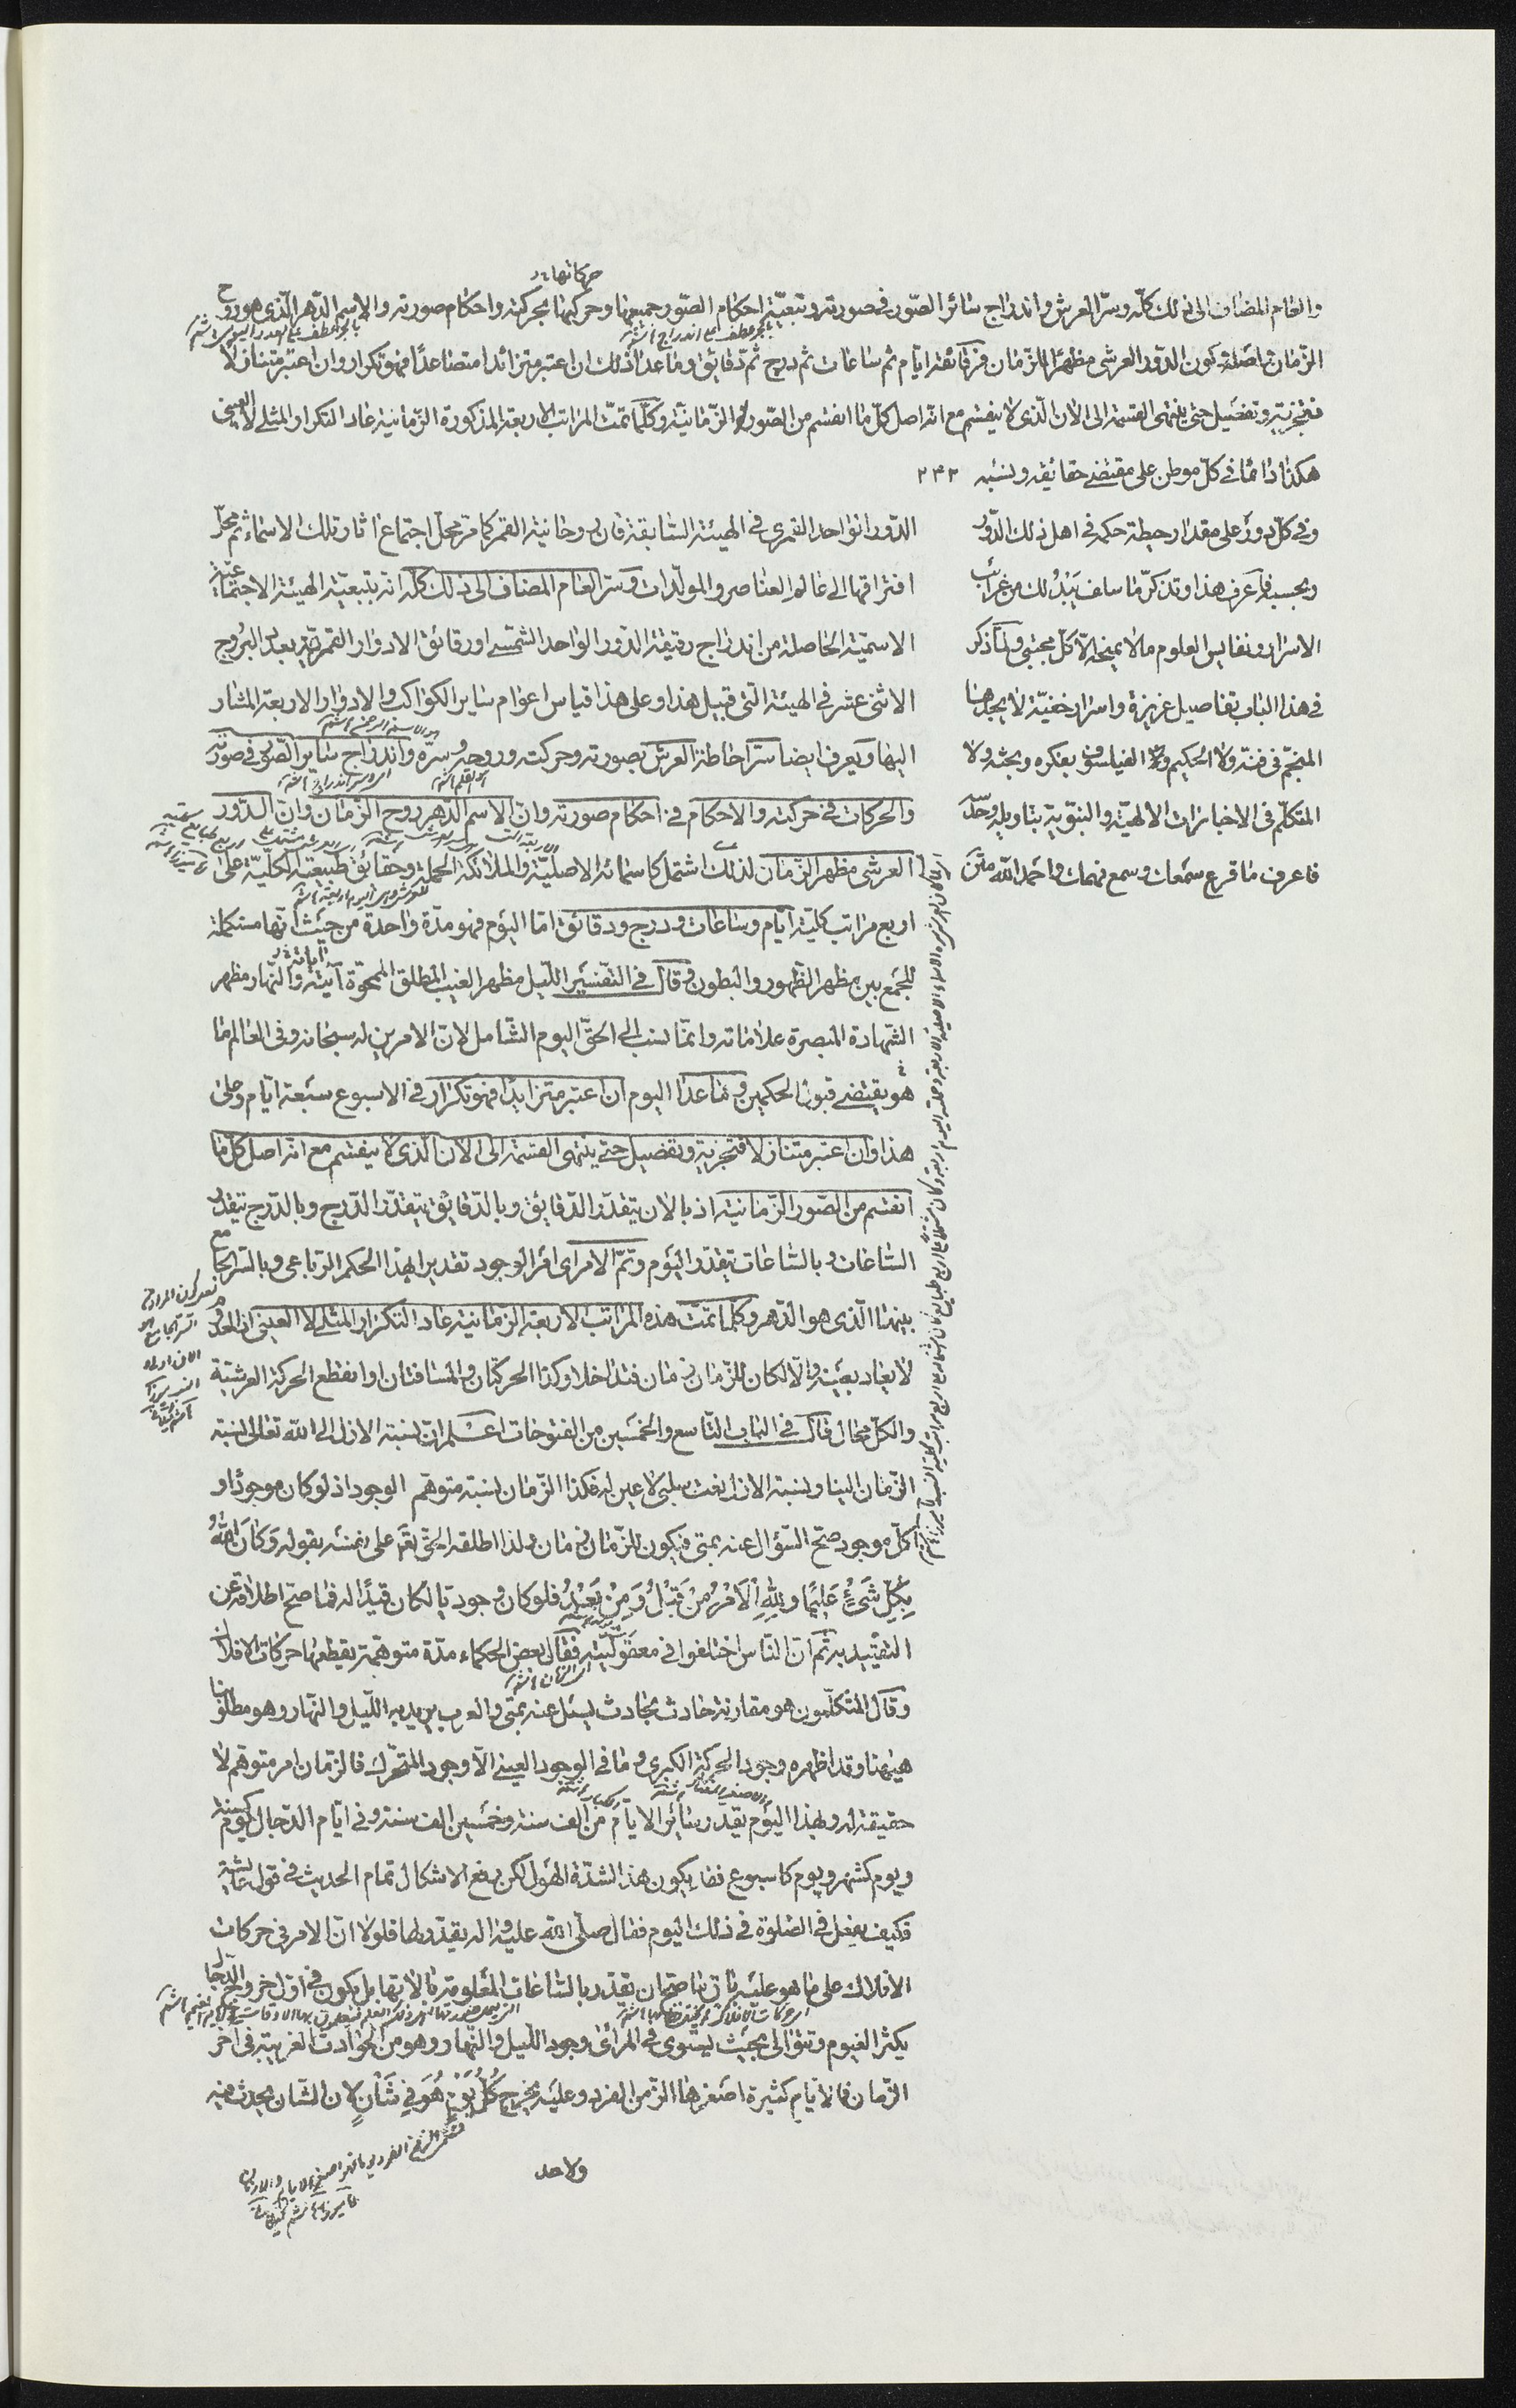 حركاتها
والعام المضاف الى ذلك كلّه وسرّ العرش واندراج سائر الصّور فى صورته وتبعيّة احكام الصّور جميعها وحركتها بحركته واحكام صورته والاسم الدّهر الّذى هو روح
الزّمان واصله وكون الدّور العرشى مظهرًا للزّمان فرقائقه ايّام ثم ساعات ثم درج ثم دقائق وما عدا ذلك ان اعتبر متزائدا متصاعدًا فهو تكرار وان اعتبر متنازلا
فتجزية وتفصيل حتى ينتهى القسمة الى الان الّذى لا ينقسم مع انّه اصل كلّ ما انقسم من الصّور الزّمانيّة وكلّما تمّت المراتب الاربعة المذكورة الزّمانية عاد التكرار المثلى لا العينى
هكذا دائما فى كلّ موطن على مقتضى حقائقه ونسبه ٢٤٢
وفى كلّ دور على مقدار حيطة حكمه فى اهل ذلك الدّور
وبحسبه فاعرف هذا وتذكّر ما سلف يَبْدُ لك من غرائب
الاسرار ونفايس العلوم ما لا يمنحه الّا كلّ مجتبى ولنذكر
فى هذا الباب تفاصيل غريزة واسرار خفيّة لا يجدها
المنجّم فى فنّه ولا الحكيم ولا الفيلسوف بفكره وبحثه ولا
المتكلّم فى الاخبارات الالهيّة والنبّوية بتاويله وحدّه
فاعرف ما قرع سمعك وسمع فهمك واحمد الله متن
الدّور الواحد القمرى فى الهيئة السّابقة فان روحانية القمر كما مرّ محلّ اجتماع اثار تلك الاسماء ثم محلّ
افتراقها الى عالم العناصر والمولّدات وسرّ العام المضاف الى ذلك كلّه انه بتبعيّة الهيئة الاجتماعيّة
الاسميّة الحاصلة من اندراج رقيقة الدّور الواحد الشمسى او رقائق الادوار القمريّة بعدد البروج
الاثنى عشر فى الهيئة التى قبيل هذا وعلى هذا قياس اعوام ساير الكواكب والادوار الاربعة المشار
اليها ويعرف ايضا سرّ احاطة العرش بصورته وحركته وروحه وسرّه واندراج ساير الصّور فى صورته
والحركات فى حركته والاحكام فى احكام صورته وان الاسم الدّهر روح الزّمان وان الدّور
العرشى مظهر الزّمان لذلك اشتمل كاسمائه الاصليّة والملائكة الحملة وحقائق طبيعته الكليّة على
اربع مراتب كلية ايّام وساعات ودرج ودقائق امّا اليوم فهو مدّة واحدة من حيث انّها مستكملة
للجمع بين مظهر الظّهور والبطون وقال فى التفسير اللّيل مظهر الغيب المطلق الممحوّة آيته والنّهار مظهر
الشّهادة المبصرة علاماته وانّما نسب الى الحقّ اليوم الشّامل لانّ الامرين له سبحانه وفى العالم ما
هو يقتضى قبول الحكمين وما عدا اليوم ان اعتبر متزايدًا فهو تكرار فى الاسبوع سبعة ايّام وعلى
هذا وان اعتبر متنازلا فتجزية وتفصيل حتى ينتهى القسمة الى الان الّذى لا ينقسم مع انّه اصل كل ما
انقسم من الصّور الزّمانية اذ بالان يتقدّر الدّقائق وبالدّقائق يتقدّر الدّرج وبالدّرج تتقدّر
السّاعات وبالسّاعات يتقدّر اليوم وتمّ الامر اى امر الوجود تقديرا بهذا الحكم الرّباعى وبالسّر الجامع
بينهما الّذى هو الدّهر وكلّما تمّت هذه المراتب الاربعة الزّمانية عاد التكرار المثلى لا العينى
لا يعاد بعينه والّا لكان للزّمان زمان فتداخلا وكذا الحركتان والمسافتان او انقطع الحركة العرشيّة
والكلّ محال قال فى الباب التّاسع والخمسين من الفتوحات اعلم انّ نسبة الازل الى الله تعالى نسبة
الزّمان الينا ونسبة الازل نعت سلبى لا عين له فكذا الزّمان نسبة متوهّم الوجود اذ لو كان موجودًا و
كلّ موجود صحّ السّؤال عنه بمتى فيكون للزّمان زمان ولذا اطلقه الحقّ تعالى على نفسه بقوله وَكَانَ اللهُ
بِكُلِّ شَىْءٍ عَلِيمًا ولِلّهِ الْأَمْرُ مِنْ قَبْلُ وَمِنْ بَعْدُ فلو كان وجوديّا لكان قيدًا له فما صحّ اطلاقه عن
التقييد به ثم انّ النّاس اختلفوا فى معقوليّته فقال بعض الحكماء مدّة متوهّمة يقطعها حركات الافلاك
وقال المتكلّمون هو مقارنة حادث بحادث يسئل عنه بمتى والعرب يريد به اللّيل والنّهار وهو مطلوبنا
هيهنا وقد اظهره وجود الحركة الكبرى وما فى الوجود العينى الّا وجود المتحّرك فالزّمان امر متوهّم لا
حقيقة له وبهذا اليوم يقدّر ساير الايّام من الف سنة وخمسين الف سنة وفى ايّام الدّجال يوم كسنة
ويوم كشهر ويوم كاسبوع فقد يكون هذا لشدّة الهول لكن رفع الاشكال تمام الحديث فى قول عائشة
فكيف يفعل فى الصّلوة فى ذلك اليوم فقال صلّى الله عليه واله يقدّر لها فلولا انّ الامر فى حركات
الافلاك على ما هو عليه باق ما صحّ ان يقدّر بالسّاعات المعلومة بالالاتها بل يكون فى اوّل خروج الدّجال
يكثر الغيوم وتتوالى بحيث يستوى فى المرائى وجود اللّيل والنّهار وهو من الحوادث الغريبة فى اخر
الزّمان فالايّام كثيرة اصغرها الزّمن الفرد وعليه يخرج كُلَّ يَوْمٍ هُوَ فِى شَأْنٍ لان الشّان يحدث فيه
ولاحد